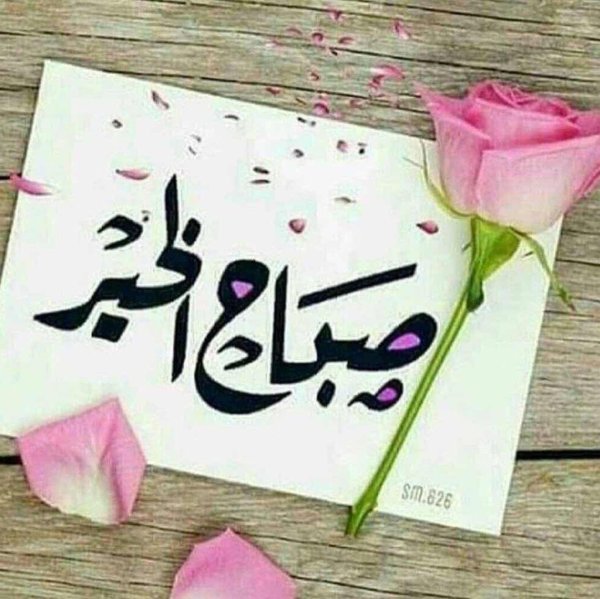 صباح الخير
SM.626